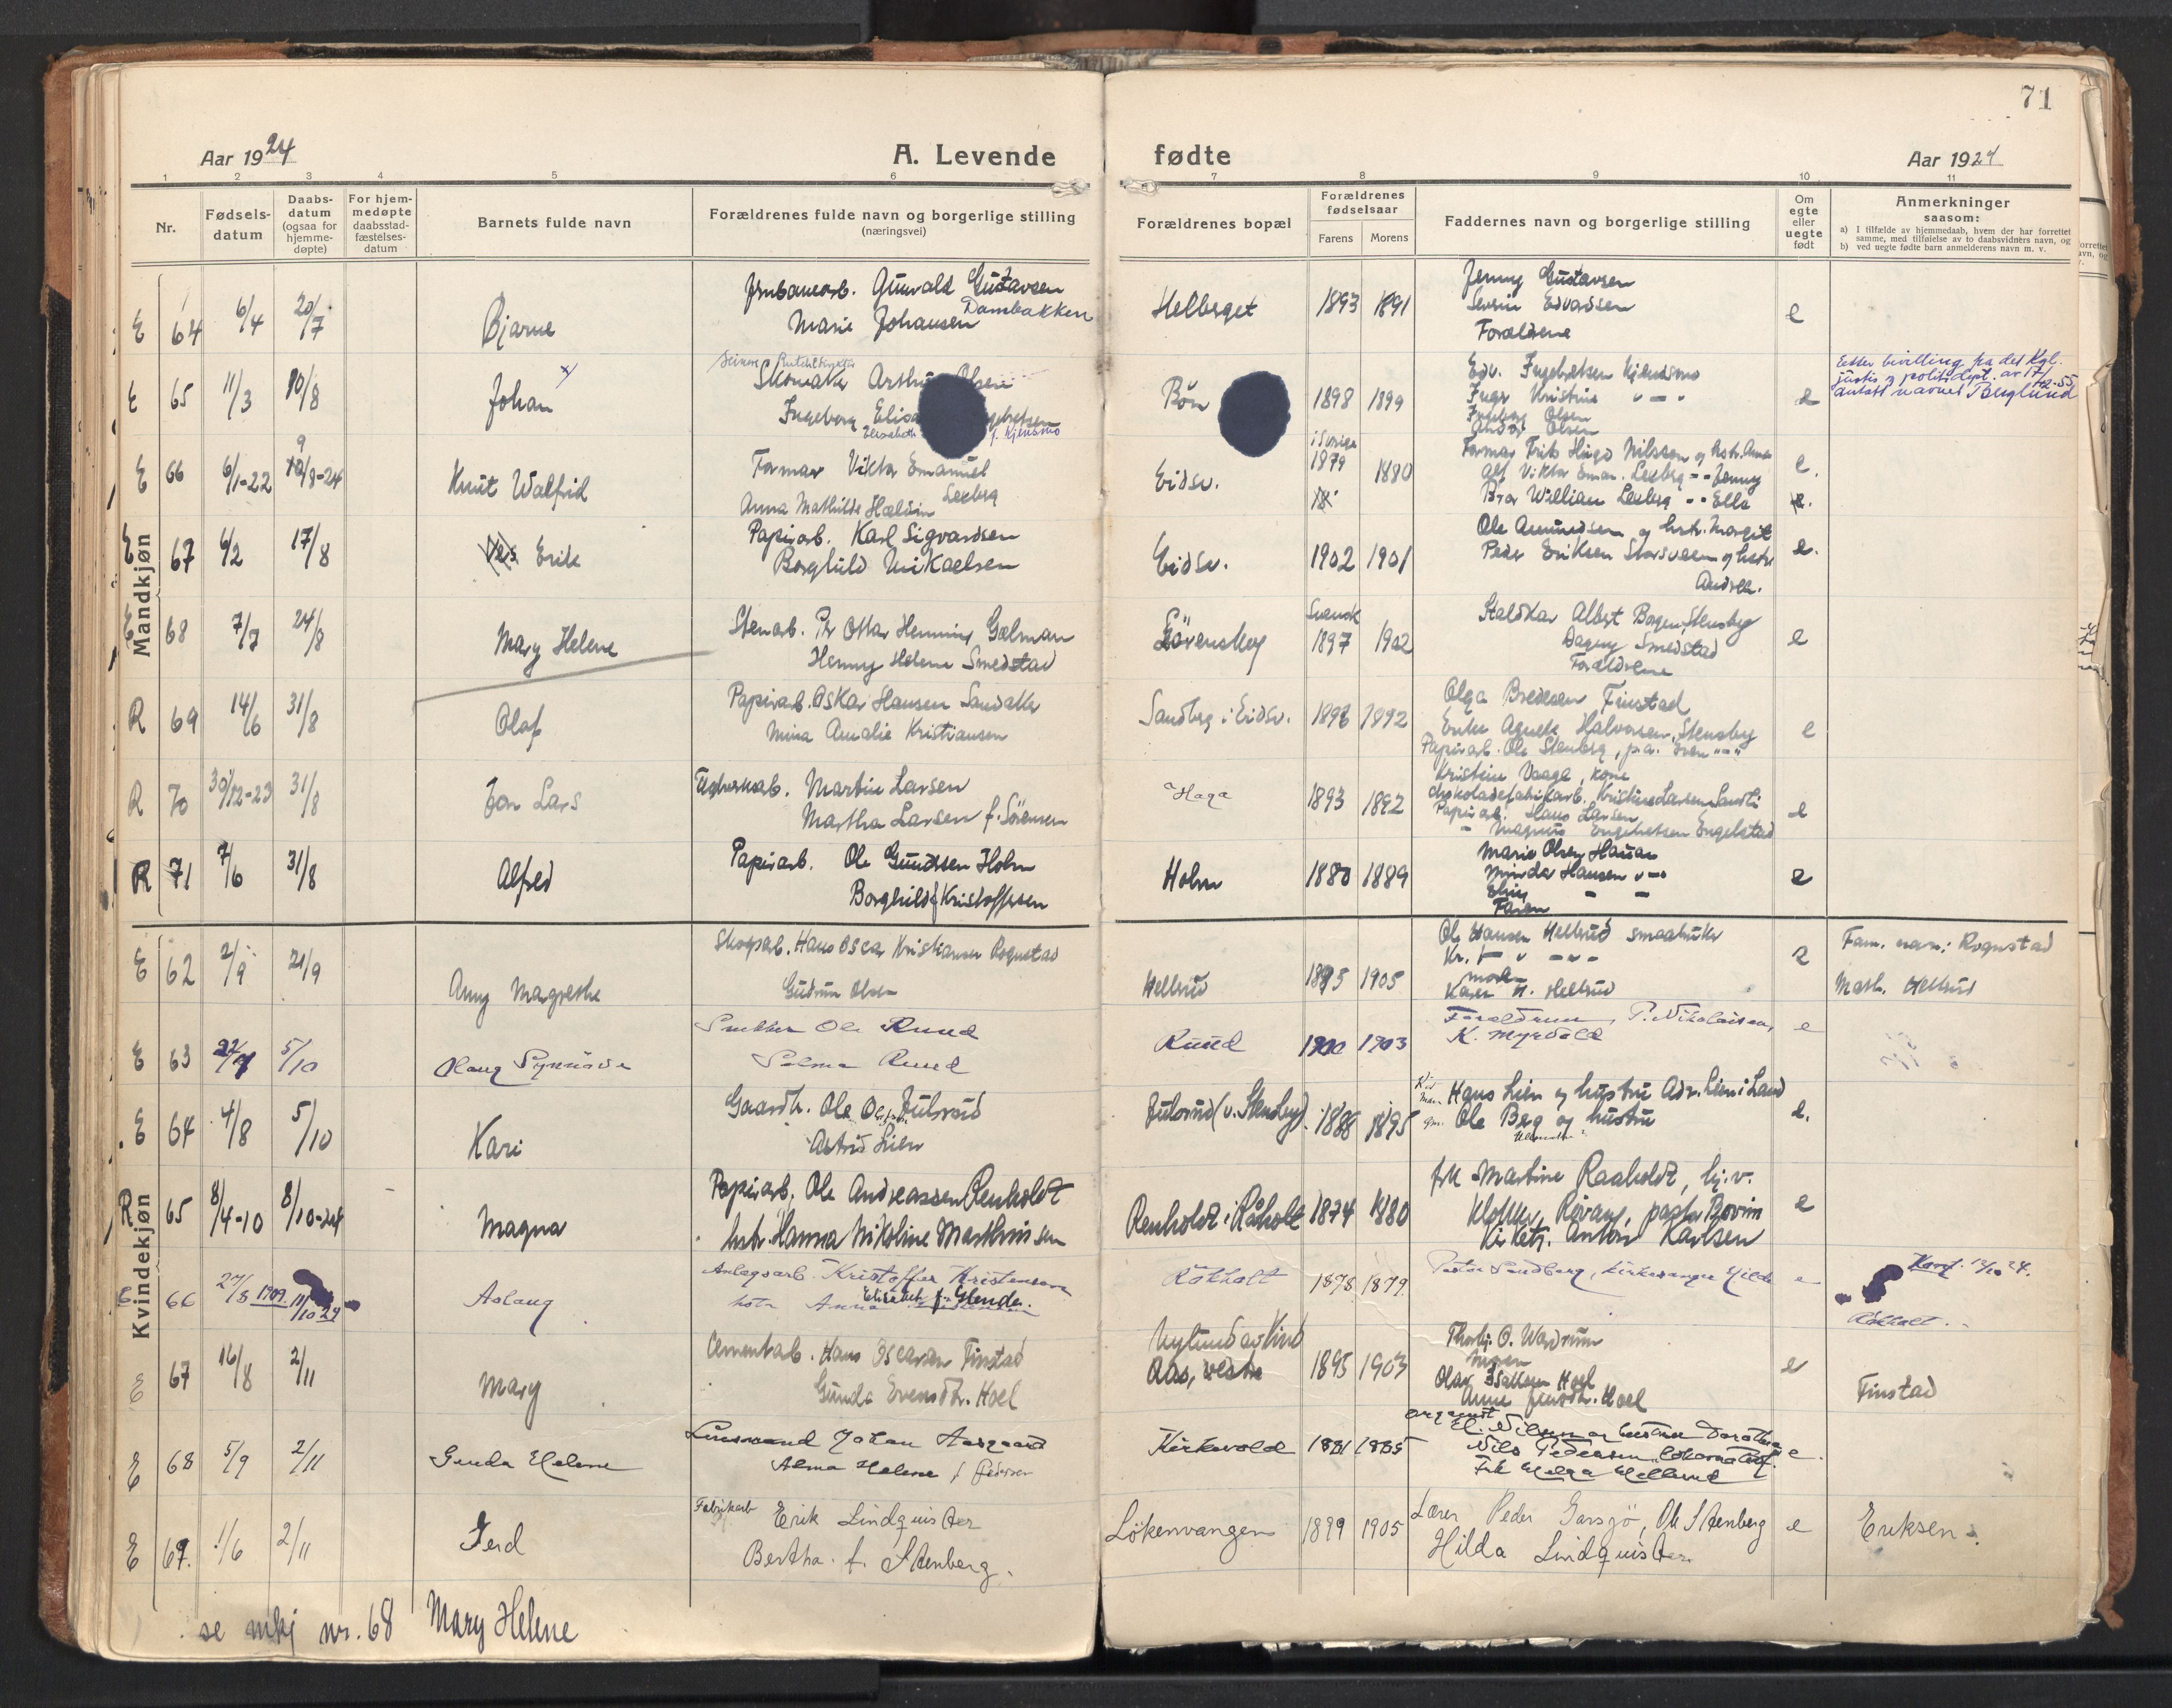 71
Aar 1924
A. Levende
fødte
Aar 1924
1 2 3 4 5 6 7 8 9 10 11
Nr.
Fødsels-
datum
Daabs-
datum
(ogsaa for
hjemme-
døpte)
For hjem-
medøpte
daabsstad-
fæstelses-
datum
Barnets fulde navn
Forældrenes fulde navn og borgerlige stilling
(næringsvei)
Forældrenes bopæl
Forældrenes
fødselsaar
Farens Morens
Faddernes navn og borgerlige stilling
Om
egte
eller
uegte
født
Anmerkninger
saasom:
a) I tilfælde av hjemmedaab, hvem der har forrettet
samme, med tilføielse av to daabsvidners navn, og
b) ved uegte fødte barn anmelderens navn m. v.
Mandkjøn
E 64 6/4 20/7 Bjarne
Jernbanearb. Gunvald Gustavsen
Dambakken
Marie Johansen
Helberget 1893 1891
Jenny Gustavsen
Severin Edvardsen
Forældrene
e
E 65 11/3 10/8 Johan
Skomaker Arthur Olsen
Ingeborg
Elisabeth f. Kjensmo
Bøn 1898 1899
Edv. Ingebretsen Kjensmo
Inga Kristine " — "
Ingeborg Olsen
Anders Olsen
e
Etter bevilling fra det Kgl.
justis og politidept. av 17/
12-55
antatt navnet Berglund
E 66 6/1-22 10/8-24 Knut Walfrid
Formar Viktor Emanuel
Lexberg
Anna Mathilde Hældin
Eidsv. i Sverige
1879 1880
Formar Frits Hugo Nilsson og hstr. Anna
Alf Viktor Eman. Lexberg - " - Jenny
Bror William Lexberg - " - Ella
e.
E 67 6/2 17/8 Erik
Papirarb. Karl Sigvardsen
Borghild Mikaelsen
Eidsv. 1902 1901
Ole Amundsen og hstr. Margit
Peder Eriksen Storsveen og hstr
Andrea.
e.
E 68 7/7 24/8 Mary Helene
Stenarb. Per Ottar Henning Gælman
Henny Helene Smedstad
Svensk
1897 1902
Staldkar Albert Borgen, Stensby
Dagny Smedstad
Forældrene
e
R 69 14/6 31/8 Olaf
Papirarb. Oskar Hansen Sandaker
Mina Amalie Kristiansen
Sandberg i Eidsv. 1892
Olga Bredesen Finstad
Enke Agnete Halvorsen, Stensby
Papirarb. Ole Stenberg, p.a. Sven "-"
e
R 70 30/12-23 31/8 Jon Lars
Martin Larsen
Martha Larsen f. Sörensen
Haga 1893 1892
Kristine Vaaga, kone
Chokoladefabrikarb. Kristine Larsen Sandli
Papirarb. Hans Larsen
- Magnus Engebretsen Engelstad
e
R 71 7/6 31/8 Alfred
Papirarb. Ole Gundersen Holm
Borghild f. Kristoffersen
Holm 1880 1889
Marie Olsen Hauan
Minda Hansen " -
Elin - -
Faren
e
Kvindekjøn
E 62 2/9 21/9 Anny Margrethe
Skogsarb. Hans Oscar Kristiansen Rognstad
Gudrun Olsen
Hellerud 1895 1905
Ole Hansen Hellerud smaabruker
Kr. - " - " -
Moren
Karen H. Hellerud
e
Fam. navn: Rognstad
Math. Hellerud
E 63 5/10 Olaug Synnöve
Snekker Ole Ruud
Selma Ruud
Ruud 1900 1903
Forældrene, P. Nikolaisen,
K. Myrvold
e
E 64 4/8 5/10 Kari
Gaardbr. Ole Olsen Julsrud
Astrid Lien
Julsrud (v. Stensby) 1888 1895
Hans Lien og hustru Adr. Lien i Land
Ole Berg og hustru
e.
R 65 8/4-10 8/10-24 Magna
Papirarb. Ole Andreassen Renholdt
hstr. Hanna Nikoline Marthinsen
Renholdt i Råholt 1874 1880
frk Martine Raaholdt, hj.v.
Klokker Røvang, pastor Bovim
Kirketj. Anton Karlsen
e
E 66 27/8 1909. 11/10 24 Aslaug
Anlegsarb. Kristoffer Kristensen
hstr Anna Elisabet f. Glende.
Råkholt 1878 1879
Pastor Sandberg, kirkesanger Milde
e
Konf. 12/10 24.
Råkholt.
E 67 16/8 2/11 Mary
Cementarb. Hans Oscarsen Finstad
Gunda Evensdtr. Hoel
Aas, vestre 1895 1903
Thorbj. O. Wardrum
Moren
Olav Isaksen Hoel
Anne Jensdtr. Hoel
e
Finstad
E 68 5/9 2/11 Gerda Helene
Lensmand Johan Aasgaard
Alma Helene f. Pedersen
Kirkevold 1881 1885
Organist
El. Nilsen og hustru Dorothea
Nils Pedersen, Johanna Ped.
Frk Helga Hellerud
e.
E 69. 1/6 2/11 Gerd
Fabrikarb Erik Lindquister
Bertha f. Stenberg.
Lökenvangen 1899 1905
Lærer Peder Garsjö, Ole Stenberg
Hilda Lindquister.
e
Eriksen.
se mkj nr. 68 Mary Helene